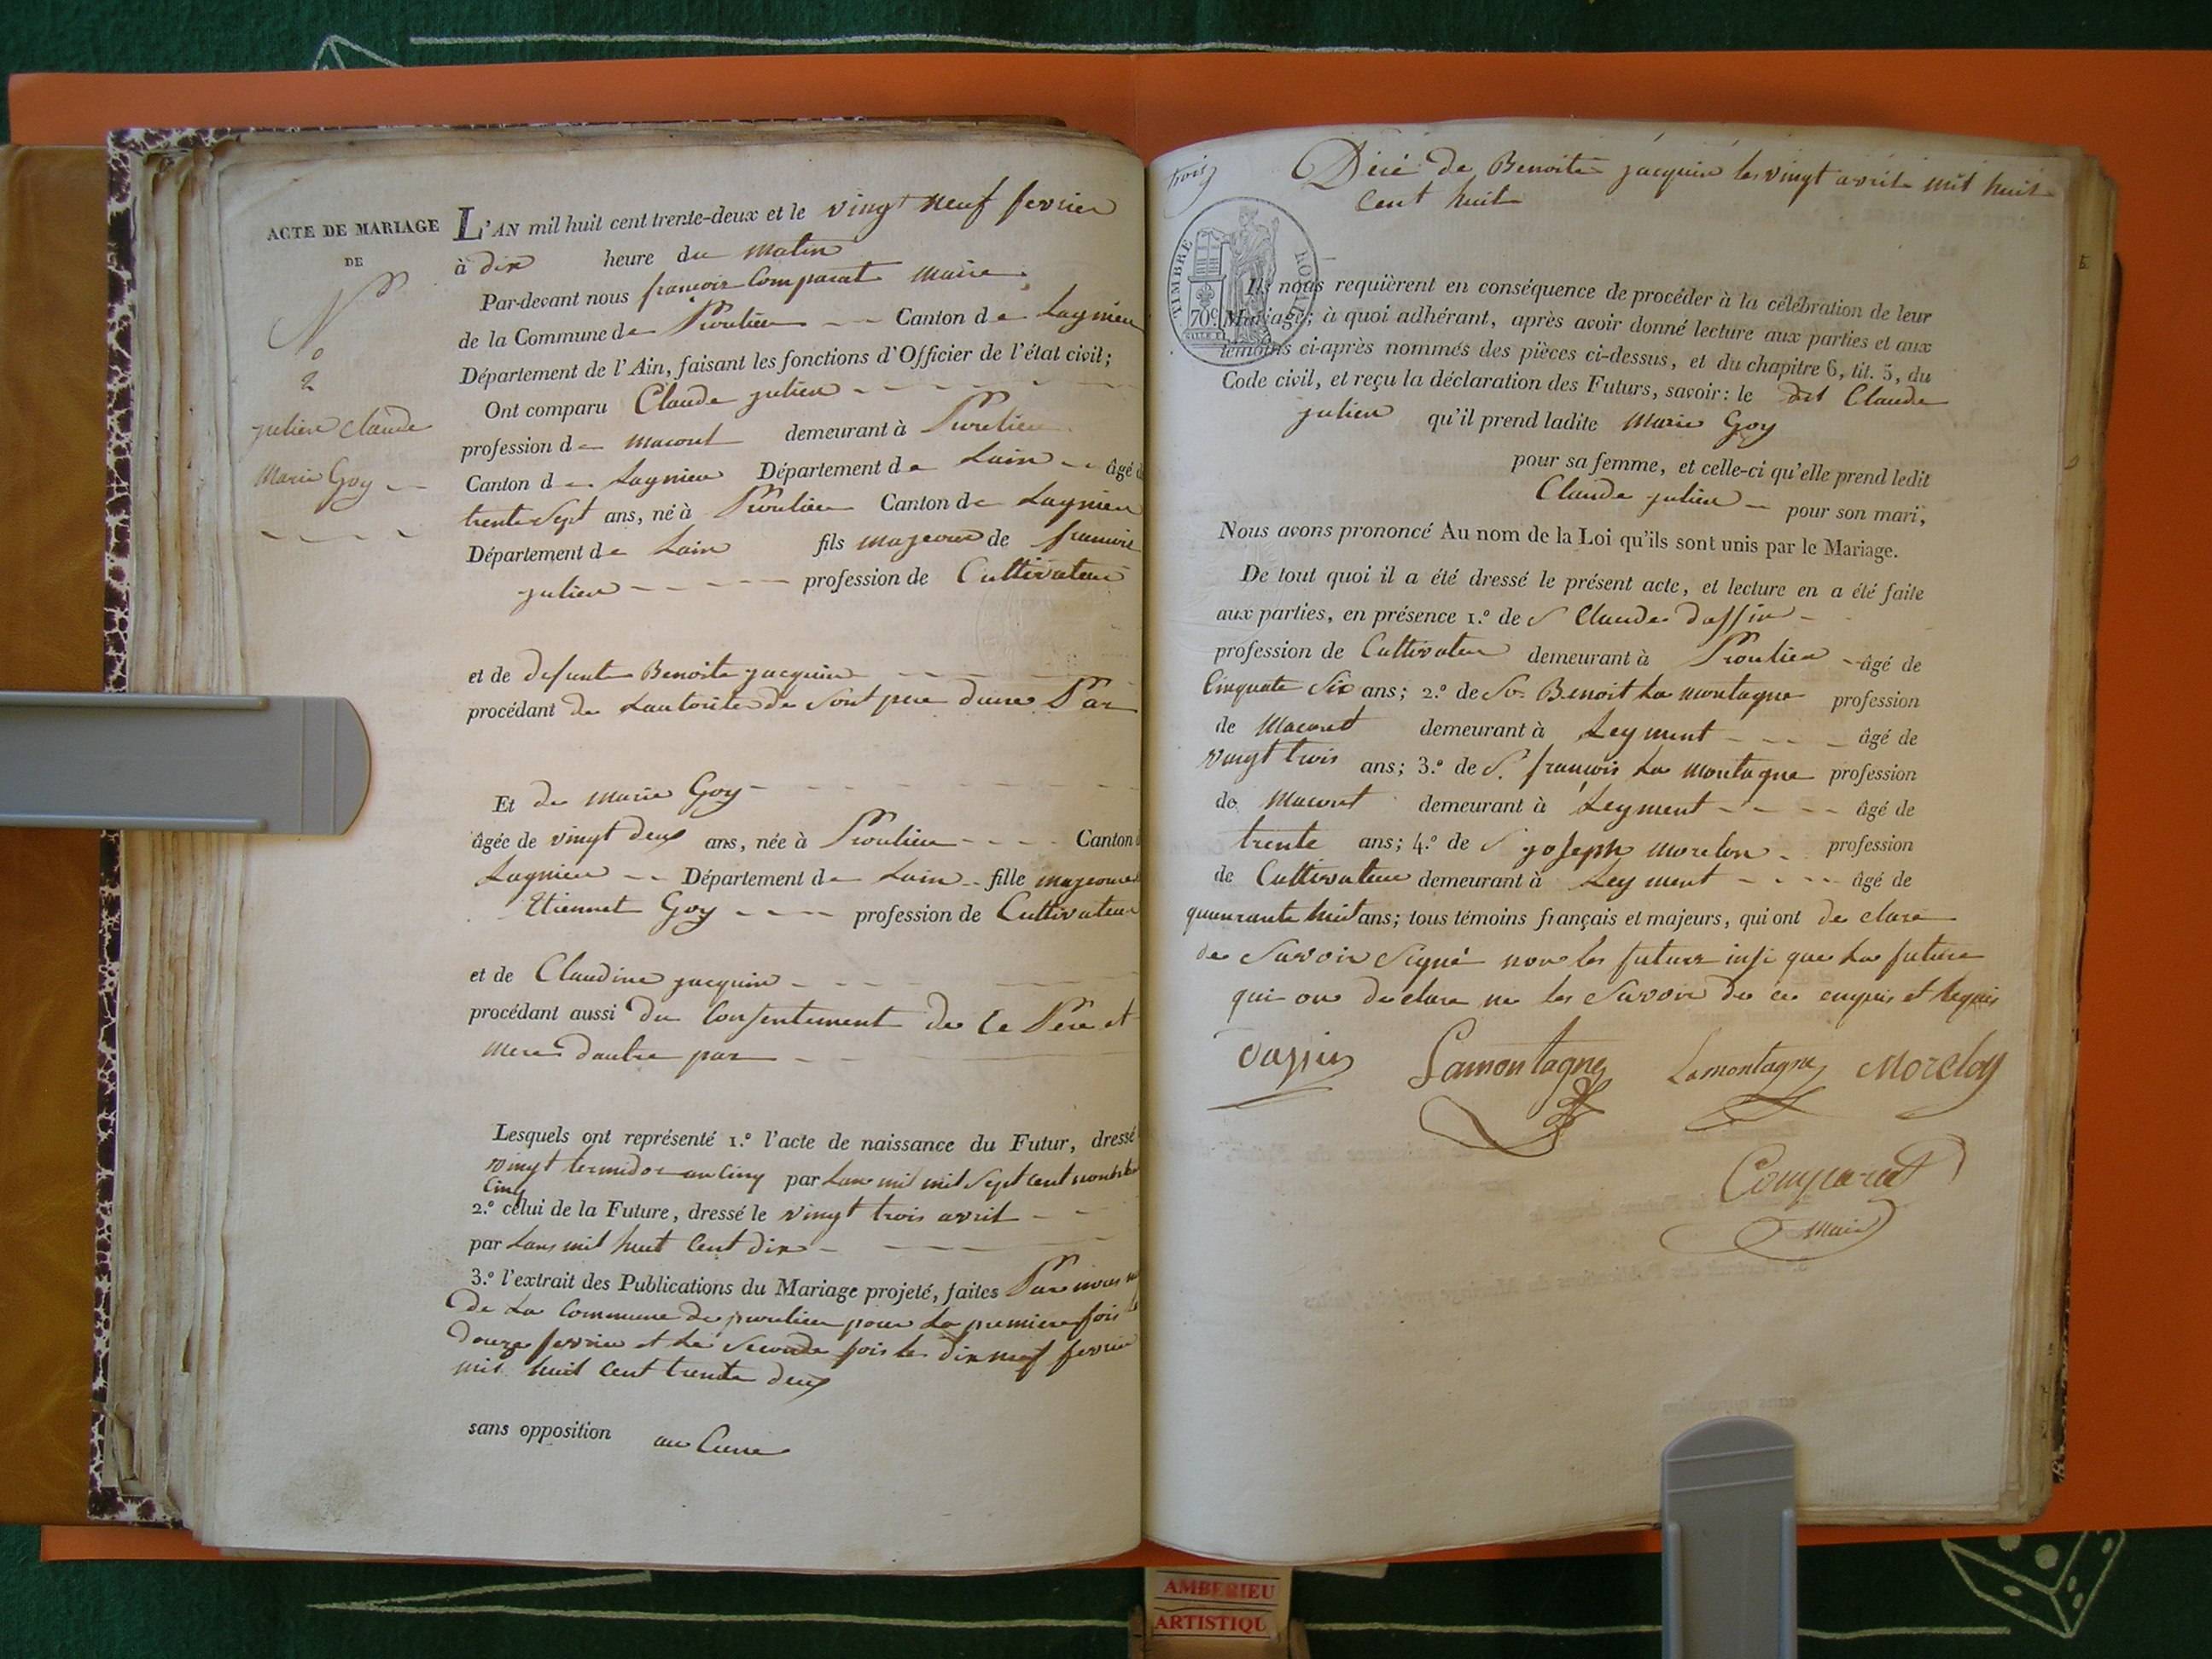 ACTE DE MARIAGE
DE
N
o
2
julien Claude
Marie Goy
L'AN mil huit cent trente-deux et le vingt neuf fevrier
à dix heure du matin
Par-devant nous françois Comparat maire
de la Commune de Proulieu Canton de Lagnieu
Département de l'Ain, faisant les fonctions d'Officier de l'état civil;
Ont comparu Claude julien
profession de macont demeurant à Proulieu
Canton de Lagnieu Département de Lain âgé d
trente Sept ans, né à Proulieu Canton de Lagnieu
Département de Lain fils majeour de francois
julien profession de Cultivateur
et de defunte Benoite jacquin
procédant de Lautorite de Sont pere dune Par
Et de Marie Goy
âgée de vingt deux ans, née à Proulieu Canton d
Lagnieu Département de Lain fille majeoure
Etiennet Goy profession de Cultivateur
et de Claudine jacquin
procédant aussi du Consentement de Ce Pére et
Mere dautre par
Lesquels ont représenté 1.° l'acte de naissance du Futur, dressé
vingt termidor an Cinq par Lans mil mil Sept cent
Cinq
2.° celui de la Future, dressé le vingt trois avril
par Lans mil huit Cent dix
3.° l'extrait des Publications du Mariage projeté, faites Par nous
de La Commune de proulieu pour La premiere fois
douze fevrier et La Seconde fois le dix neuf fevrier
mil huit cent trente deux
sans opposition au Cune
trois
Décé de Benoite jacquin le vingt avril mil huit
Cent huit
TIMBRE ROYAL
70c.
Ils nous requièrent en conséquence de procéder à la célébration de leur
Mariage; à quoi adhérant, après avoir donné lecture aux parties et aux
témoins ci-après nommés des pièces ci-dessus, et du chapitre 6, tit. 5, du
Code civil, et reçu la déclaration des Futurs, savoir: le dit Claude
julien qu'il prend ladite Marie Goy
pour sa femme, et celle-ci qu'elle prend ledit
Claude julien pour son mari,
Nous avons prononcé Au nom de la Loi qu'ils sont unis par le Mariage.
De tout quoi il a été dressé le présent acte, et lecture en a été faite
aux parties, en présence 1.° de S Claude dassin
profession de Cultivateur demeurant à Proulieu âgé de
Cinquate Six ans; 2.° de Sr. Benoit La montagne profession
de Maconet demeurant à Leyment âgé de
vingt trois ans; 3.° de S. françois La montagne profession
de Maconet demeurant à Leyment âgé de
trente ans; 4.° de S joseph morelon profession
de Cultivateur demeurant à Leyment âgé de
quaurante huit ans; tous témoins français et majeurs, qui ont de clare
de Savoir Signé non les future insi que La future
qui on declare ne les Savoir de ce enquis et Requis
Dassin Lamontagne Lamontagne Morelon
Comparat
Maire
AMBERIEU
ARTISTIQU